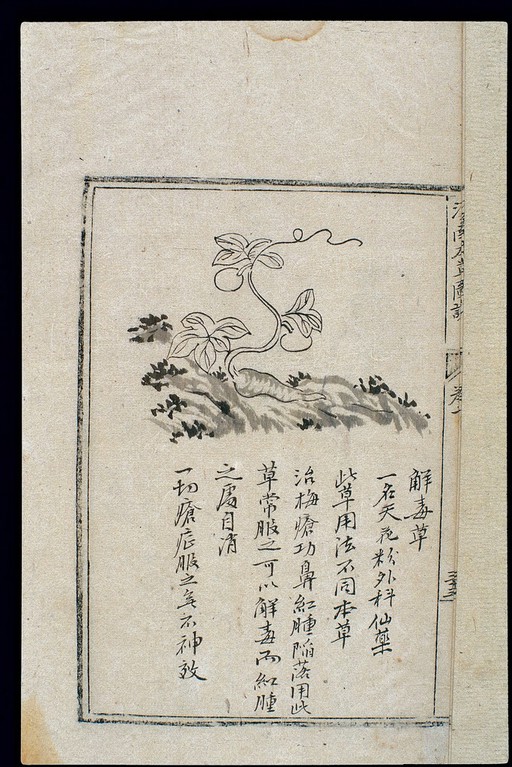 解毒草
一名天花粉外科仙藥
此草用法不同本草
治梅瘡功鼻紅腫陷落用此
草常服之可以解毒而紅腫
之處自消
一切瘡症服之無不神效
卷一